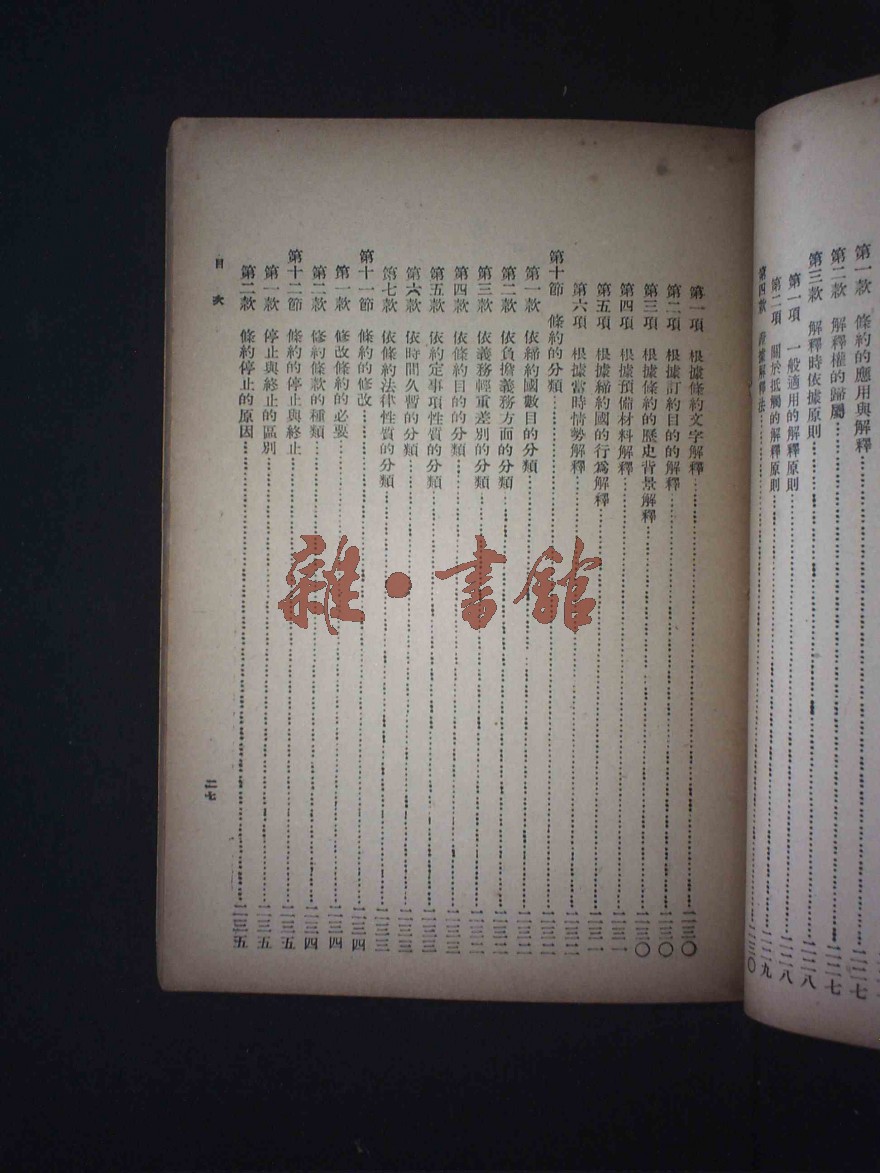 第一款 條約的應用與解釋……二二七
第二款 解釋權的歸屬……二二七
第三款 解釋時依據原則……二二八
第一項 一般適用的解釋原則……二二八
第二項 關於抵觸的解釋原則……二二九
第四款 據解釋法……二三〇
第一項 根據條約文字解釋……二三〇
第二項 根據訂約目的的解釋……二三〇
第三項 根據條約的歷史背景解釋……二三〇
第四項 根據預備材料解釋……二三一
第五項 根據締約國的行爲解釋……二三一
第六項 根據當時情勢解釋……二三二
第十節 條約的分類……二三二
第一款 依締約國數目的分類……二三二
第二款 依負擔義務方面的分類……二三二
第三款 依義務輕重差別的分類……二三二
第四款 依條約目的的分類……二三三
第五款 依約定事項性質的分類……二三三
第六款 依時間久暫的分類……二三三
第七款 依條約法律性質的分類……二三三
第十一節 條約的修改……二三四
第一款 修改條約的必要……二三四
第二款 修約條款的種類……二三四
第十二節 條約的停止與終止……二三五
第一款 停止與終止的區別……二三五
第二款 條約停止的原因……二三五
目次
二七
雜·書館